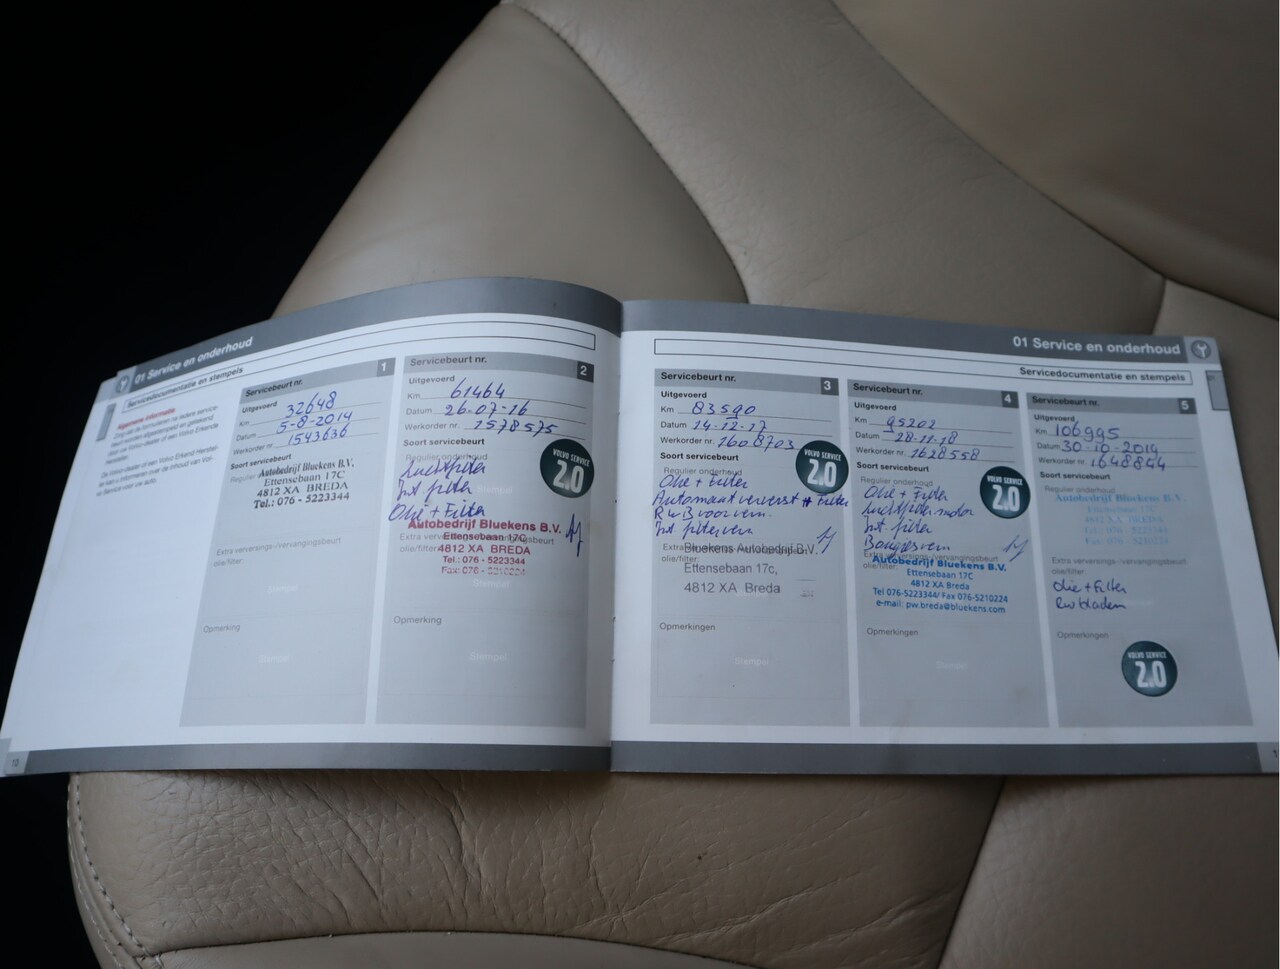 01 Service en onderhoud
Servicedocumentatie en stempels
Algemene informatie
Servicebeurt nr. 1
Uitgevoerd
Km 32648
Datum 5-8-2014
Werkorder nr. 1543636
Soort servicebeurt
Regulier
Autobedrijf Bluekens B.V.
Ettensebaan 17C
4812 XA BREDA
Tel.: 076 - 5223344
Extra verversings-/vervangingsbeurt
olie/filter:
Stempel
Opmerking
Stempel
10
Servicebeurt nr. 2
Uitgevoerd
Km 61464
Datum 26-07-16
Werkorder nr. 1578575
Soort servicebeurt
VOLVO SERVICE
2.0
Regulier onderhoud
Luchtfilter
Int filter
Stempel
Olie + Filter
Autobedrijf Bluekens B.V.
Ettensebaan 17C
4812 XA BREDA
Tel.: 076 - 5223344
Fax: 076 - 5210224
olie/filter:
Stempel
Opmerking
Stempel
01 Service en onderhoud
Servicedocumentatie en stempels
Servicebeurt nr. 3
Uitgevoerd
Km 83590
Datum 14-12-17
Werkorder nr. 1608703
Soort servicebeurt
VOLVO SERVICE
2.0
Regulier onderhoud
Olie + Filter
Automaat ververst + Filter
Int filter verv
Bluekens Autobedrijf B.V.
Ettensebaan 17c,
4812 XA Breda
Opmerkingen
Stempel
Servicebeurt nr. 4
Uitgevoerd
Km 95202
Datum 28-11-18
Werkorder nr. 1628558
Soort servicebeurt
VOLVO SERVICE
2.0
Regulier onderhoud
Olie + Filter
Luchtfilter motor
Int filter
Bougies verv
Extra verversings-/vervangingsbeurt
olie/filter:
Autobedrijf Bluekens B.V.
Ettensebaan 17C
4812 XA Breda
Tel 076-5223344/ Fax 076-5210224
e-mail: pw.breda@bluekens.com
Opmerkingen
Stempel
Servicebeurt nr. 5
Uitgevoerd
Km 106995
Datum 30-10-2014
Werkorder nr. 1648844
Soort servicebeurt
Regulier onderhoud
Autobedrijf Bluekens B.V.
Ettensebaan 17C
4812 XA BREDA
Tel.: 076 - 5223344
Extra verversings-/vervangingsbeurt
olie/filter:
Olie + Filter
Rw bladen
Opmerkingen
VOLVO SERVICE
2.0